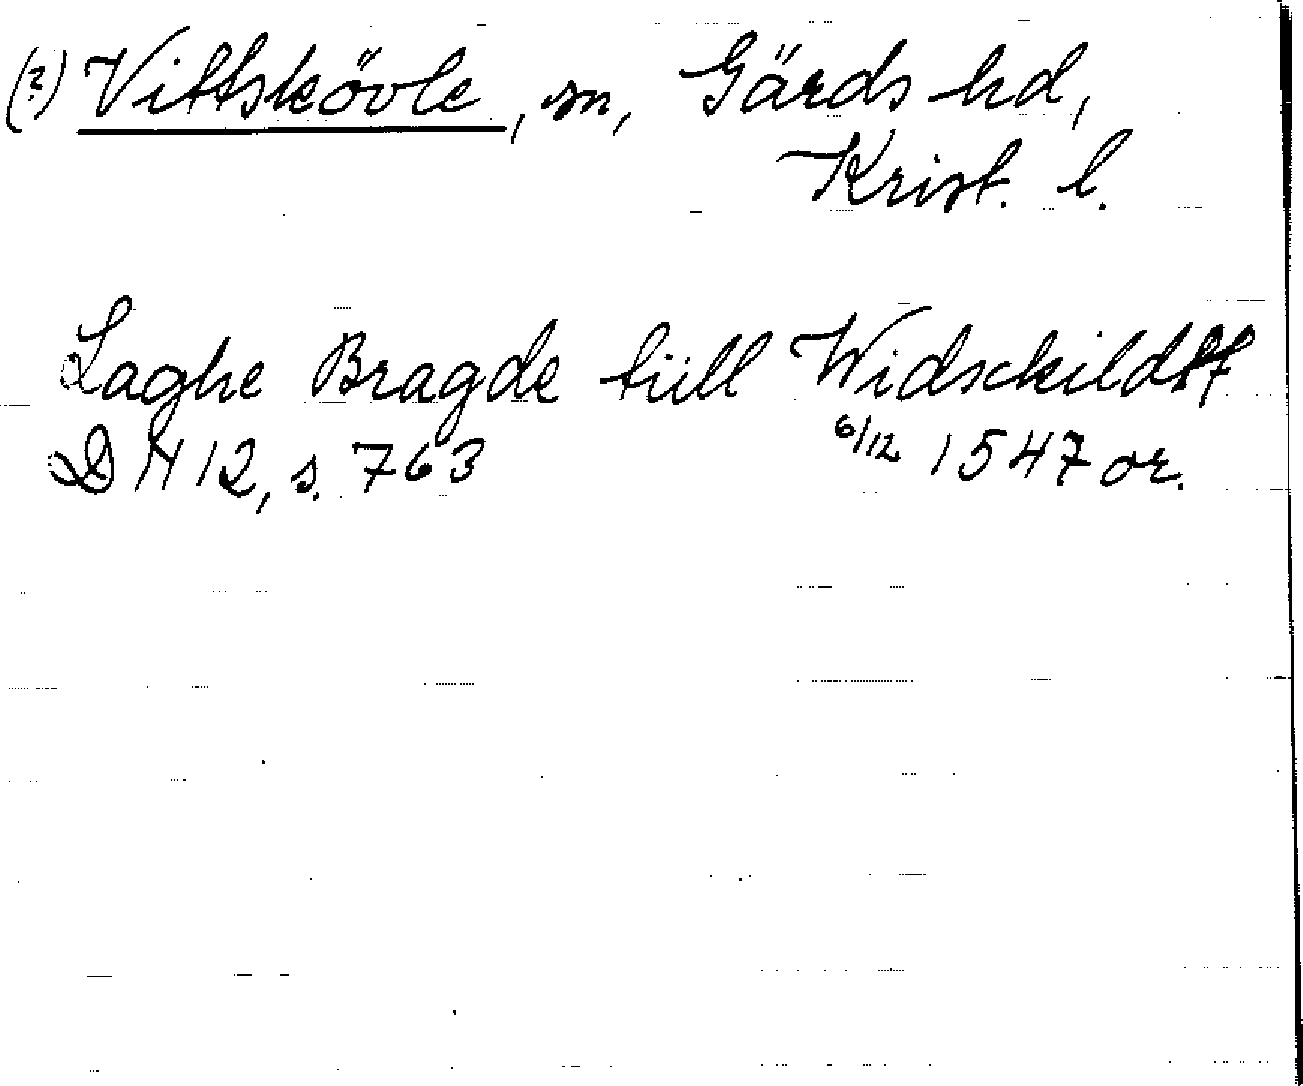 (?) Vittskövle, sn, Gärds hd,
Krist. l.
Laghe Bragde tüll
DN 12, s. 763 6/12 1547 or.